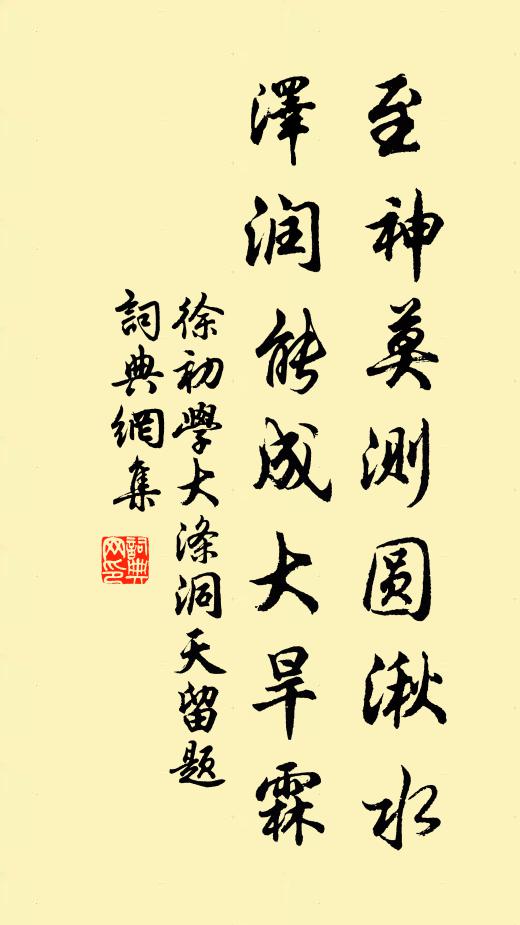 至神莫測圆湫水
澤润能成大旱霖
徐初學大滌洞天留题
詞典網集
詞典网印